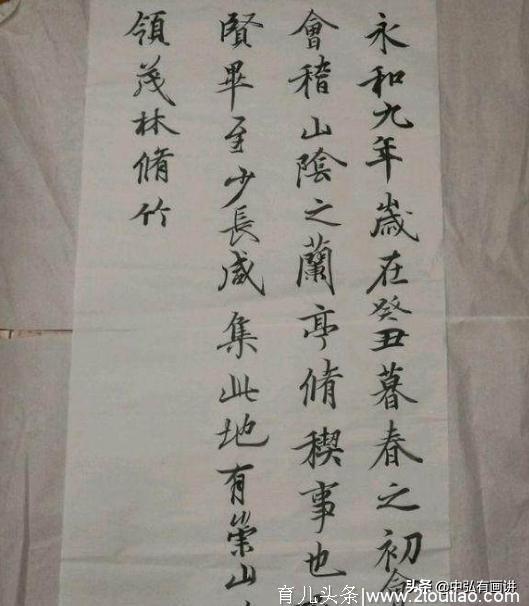 永和九年歲在癸丑暮春之初
會稽山陰之蘭亭脩稧事也
賢畢至少長咸集此地有崇山
領茂林脩竹
头条 @中弘有画讲
育儿头条